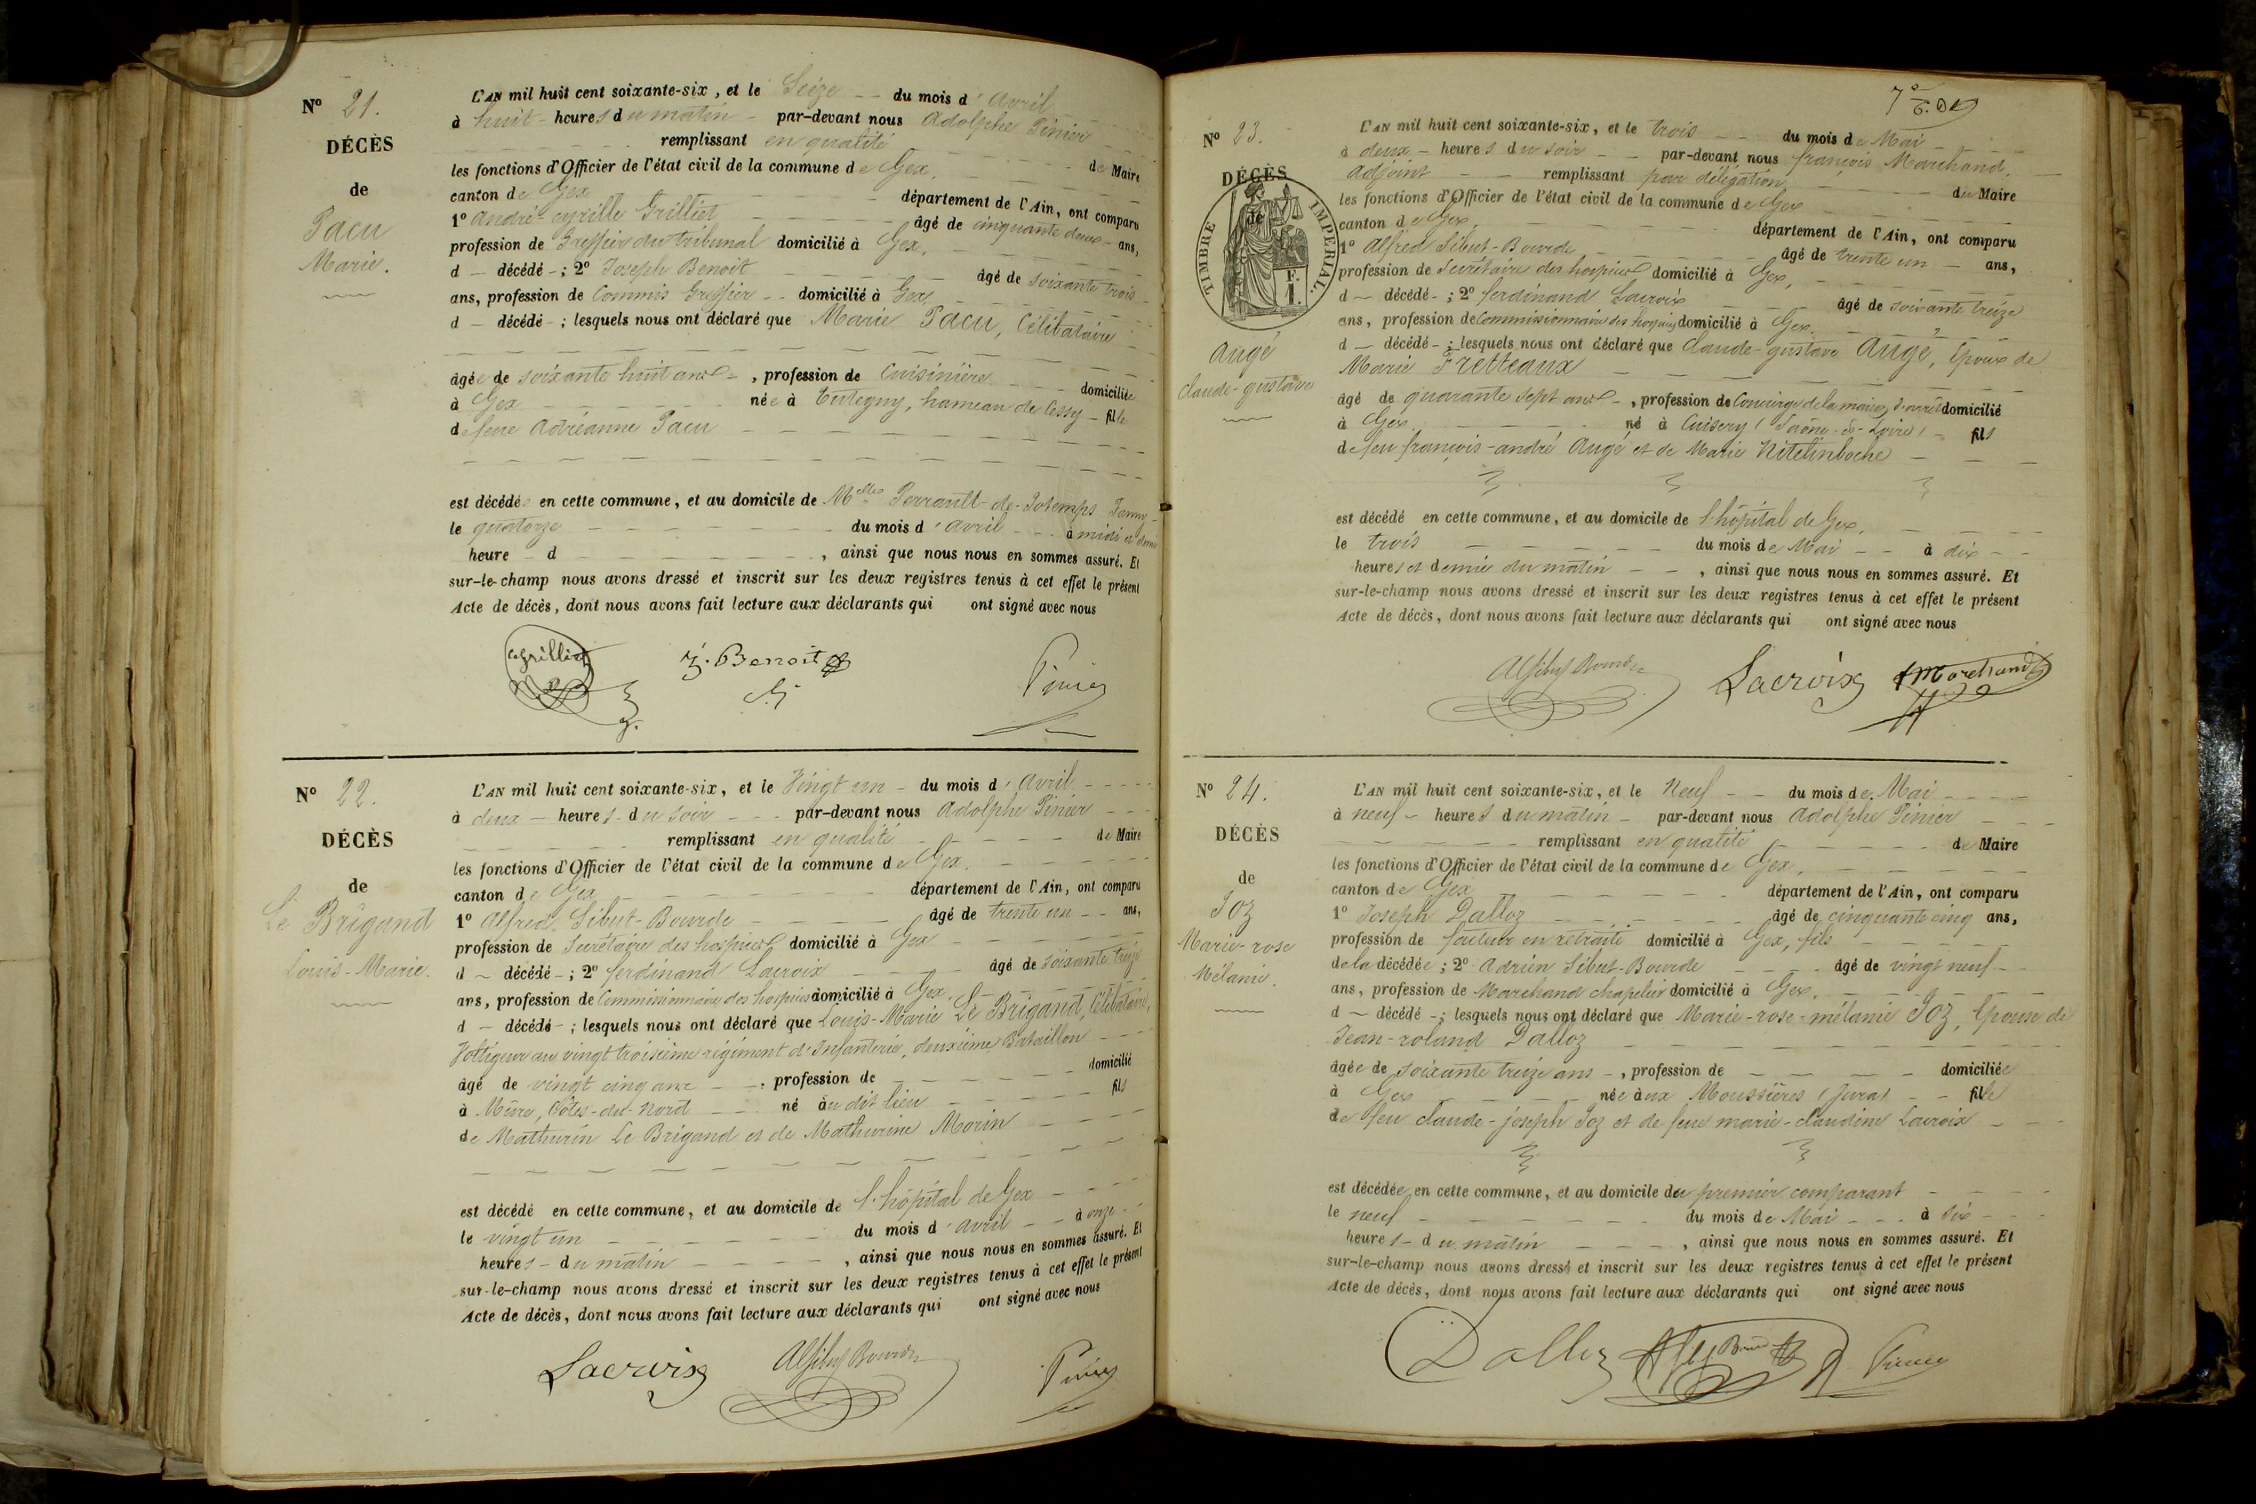 Nº 21.
DÉCÈS
de
Pacu
Marie.
L'AN mil huit cent soixante-six, et le Seize du mois d'avril
à huit heures du matin par-devant nous Adolphe Pinier
remplissant en qualité
les fonctions d'Officier de l'état civil de la commune de Gex, de Maire
canton de Gex département de l'Ain, ont comparu
1º André-Cyrille Grilliet âgé de cinquante deux ans,
profession de Greffier du tribunal domicilié à Gex,
d décédé ; 2º Joseph Benoit âgé de soixante trois
ans, profession de Commis Greffier domicilié à Gex,
d décédé ; lesquels nous ont déclaré que Marie Pacu, Célibataire
âgée de soixante huit ans, profession de Cuisinière domiciliée
à Gex née à Tutegny, hameau de Cessy fille
de feue Adréanne Pacu
est décédée en cette commune, et au domicile de Melles Perrault-de-Jotemps
le quatorze du mois d'avril à midi et demi
heure d , ainsi que nous nous en sommes assuré. Et
sur-le-champ nous avons dressé et inscrit sur les deux registres tenus à cet effet le présent
Acte de décès, dont nous avons fait lecture aux déclarants qui ont signé avec nous
C. Grilliet J. Benoit Pinier
Nº 22.
DÉCÈS
de
Le Brigand
Louis-Marie.
L'AN mil huit cent soixante-six, et le Vingt un du mois d'avril
à deux heures du soir par-devant nous Adolphe Pinier
remplissant en qualité de Maire
les fonctions d'Officier de l'état civil de la commune de Gex
canton de Gex département de l'Ain, ont comparu
1º Alfred Sibut-Bourde âgé de trente un ans,
profession de Secrétaire des hospices domicilié à Gex
d décédé ; 2º ferdinand Lacroix âgé de soixante treize
ans, profession de Commissionnaire des hospices domicilié à Gex,
d décédé ; lesquels nous ont déclaré que Louis-Marie Le Brigand, Célibataire,
Voltigeur au vingt troisième régiment d'Infanterie, deuxième Bataillon
âgé de vingt cinq ans, profession de domicilié
à Mûre, Côtes-du-Nord né au dit lieu fils
de Mathurin Le Brigand et de Mathurine Morin
est décédé en cette commune, et au domicile de l'hôpital de Gex
le vingt un du mois d'avril à onze
heures du matin , ainsi que nous nous en sommes assuré. Et
sur-le-champ nous avons dressé et inscrit sur les deux registres tenus à cet effet le présent
Acte de décès, dont nous avons fait lecture aux déclarants qui ont signé avec nous
Lacroix Alf Sibut Bourde Pinier
Nº 23.
DÉCÈS
de
TIMBRE IMPÉRIAL.
F.
1.
Augé
Claude-gustave
L'AN mil huit cent soixante-six, et le trois du mois de Mai
à deux heures du soir par-devant nous françois Marchand,
adjoint remplissant par délégation du Maire
les fonctions d'Officier de l'état civil de la commune de Gex
canton de Gex, département de l'Ain, ont comparu
1º Alfred Sibut-Bourde âgé de trente un ans,
profession de Secrétaire des hospices domicilié à Gex,
d décédé ; 2º ferdinand Lacroix âgé de soixante treize
ans, profession de Commissionnaire des hospices domicilié à Gex,
d décédé ; lesquels nous ont déclaré que Claude-gustave Augé, Epoux de
Marie Fretteaux
âgé de quarante sept ans, profession de Concierge de la maison d'arrêt domicilié
à Gex né à Cuisery (Saône-&-Loire) fils
de feu françois-andré Augé et de Marie Nitelinboche
est décédé en cette commune, et au domicile de l'hôpital de Gex,
le trois du mois de Mai à dix
heures et demie du matin , ainsi que nous nous en sommes assuré. Et
sur-le-champ nous avons dressé et inscrit sur les deux registres tenus à cet effet le présent
Acte de décès, dont nous avons fait lecture aux déclarants qui ont signé avec nous
Alf Sibut Bourde Lacroix f Marchand
Nº 24.
DÉCÈS
de
Joz
Marie-rose
Mélanie.
L'AN mil huit cent soixante-six, et le Neuf du mois de Mai
à neuf heures du matin par-devant nous Adolphe Pinier
remplissant en qualité de Maire
les fonctions d'Officier de l'état civil de la commune de Gex,
canton de Gex département de l'Ain, ont comparu
1º Joseph Dalloz âgé de cinquante cinq ans,
profession de facteur en retraite domicilié à Gex, fils
de la décédée ; 2º Adrien Sibut-Bourde âgé de vingt neuf
ans, profession de Marchand chapelier domicilié à Gex,
d décédé ; lesquels nous ont déclaré que Marie-rose-mélanie Joz, Epouse de
Jean-roland Dalloz
âgée de soixante treize ans, profession de domiciliée
à Gex née aux Moussières (Jura) fille
de feu claude-joseph Joz et de feue marie-claudine Lacroix
est décédée en cette commune, et au domicile du premier comparant
le neuf du mois de Mai à six
heures du matin , ainsi que nous nous en sommes assuré. Et
sur-le-champ nous avons dressé et inscrit sur les deux registres tenus à cet effet le présent
Acte de décès, dont nous avons fait lecture aux déclarants qui ont signé avec nous
Dalloz Pinier